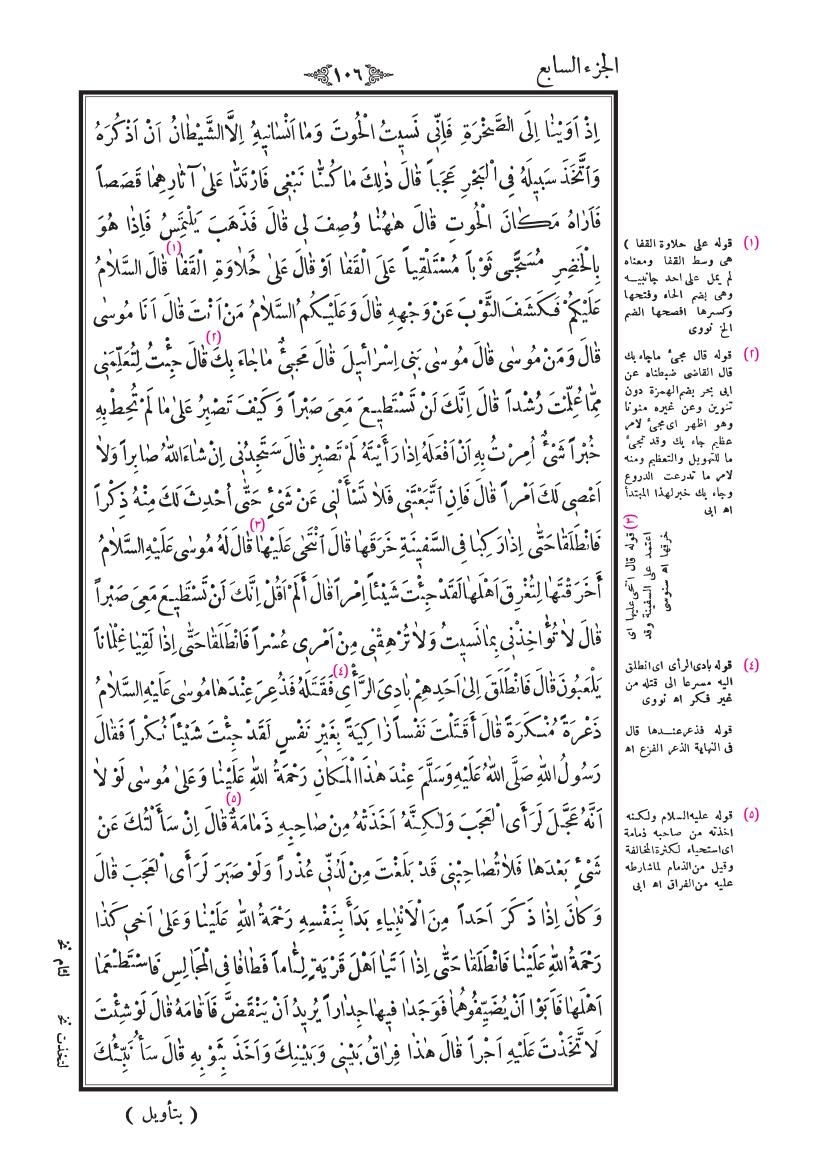 الجزء السابع
١٠٦
اِذْ اَوَيْنٰا اِلَى الصَّخْرَةِ فَاِنّٖى نَسٖيتُ الْحُوتَ وَمٰا اَنْسٰانٖيهُ اِلَّا الشَّيْطٰانُ اَنْ اَذْكُرَهُ
وَاتَّخَذَ سَبٖيلَهُ فِى الْبَحْرِ عَجَباً قٰالَ ذٰلِكَ مٰا كُنّٰا نَبْغٖى فَارْتَدّٰا عَلٰى آثٰارِهِمٰا قَصَصاً
فَاَرٰاهُ مَكٰانَ الْحُوتِ قٰالَ هٰهُنٰا وُصِفَ لٖى قٰالَ فَذَهَبَ يَلْتَمِسُ فَاِذٰا هُوَ
بِالْخَضِرِ مُسَجًّى ثَوْباً مُسْتَلْقِياً عَلَى الْقَفٰا اَوْ قٰالَ عَلٰى حُلٰاوَةِ الْقَفٰا (١) قٰالَ السَّلٰامُ
عَلَيْكُمْ فَكَشَفَ الثَّوْبَ عَنْ وَجْهِهِ قٰالَ وَعَلَيْكُمُ السَّلٰامُ مَنْ اَنْتَ قٰالَ اَنَا مُوسٰى
قٰالَ وَمَنْ مُوسٰى قٰالَ مُوسٰى بَنٖى اِسْرٰائٖيلَ قٰالَ مَجٖىءٌ مٰا جٰاءَ بِكَ (٢) قٰالَ جِئْتُ لِتُعَلِّمَنٖى
مِمّٰا عُلِّمْتَ رُشْداً قٰالَ اِنَّكَ لَنْ تَسْتَطٖيعَ مَعِىَ صَبْراً وَكَيْفَ تَصْبِرُ عَلٰى مٰا لَمْ تُحِطْ بِهِ
خُبْراً شَىْءٌ اُمِرْتُ بِهِ اَنْ اَفْعَلَهُ اِذٰا رَأَيْتَهُ لَمْ تَصْبِرْ قٰالَ سَتَجِدُنٖى اِنْ شٰاءَ اللهُ صٰابِراً وَلٰا
اَعْصٖى لَكَ اَمْراً قٰالَ فَاِنِ اتَّبَعْتَنٖى فَلٰا تَسْأَلْنٖى عَنْ شَىْءٍ حَتّٰى اُحْدِثَ لَكَ مِنْهُ ذِكْراً
فَانْطَلَقٰا حَتّٰى اِذٰا رَكِبٰا فِى السَّفٖينَةِ خَرَقَهٰا قٰالَ انْتَحٰى عَلَيْهٰا (٣) قٰالَ لَهُ مُوسٰى عَلَيْهِ السَّلٰامُ
أَخَرَقْتَهٰا لِتُغْرِقَ اَهْلَهٰا لَقَدْ جِئْتَ شَيْئاً اِمْراً قٰالَ أَلَمْ اَقُلْ اِنَّكَ لَنْ تَسْتَطٖيعَ مَعِىَ صَبْراً
قٰالَ لٰا تُؤٰاخِذْنٖى بِمٰا نَسٖيتُ وَلٰا تُرْهِقْنٖى مِنْ اَمْرٖى عُسْراً فَانْطَلَقٰا حَتّٰى اِذٰا لَقِيٰا غِلْمٰاناً
يَلْعَبُونَ قٰالَ فَانْطَلَقَ اِلٰى اَحَدِهِمْ بٰادِىَ الرَّأْىِ (٤) فَقَتَلَهُ فَذُعِرَ عِنْدَهٰا مُوسٰى عَلَيْهِ السَّلٰامُ
ذَعْرَةً مُنْكَرَةً قٰالَ أَقَتَلْتَ نَفْساً زٰاكِيَةً بِغَيْرِ نَفْسٍ لَقَدْ جِئْتَ شَيْئاً نُكْراً فَقٰالَ
رَسُولُ اللهِ صَلَّى اللهُ عَلَيْهِ وَسَلَّمَ عِنْدَ هٰذَا الْمَكٰانِ رَحْمَةُ اللهِ عَلَيْنٰا وَعَلٰى مُوسٰى لَوْ لٰا
اَنَّهُ عَجَّلَ لَرَأَى الْعَجَبَ وَلٰكِنَّهُ اَخَذَتْهُ مِنْ صٰاحِبِهِ ذَمٰامَةٌ (٥) قٰالَ اِنْ سَأَلْتُكَ عَنْ
شَىْءٍ بَعْدَهٰا فَلٰا تُصٰاحِبْنٖى قَدْ بَلَغْتَ مِنْ لَدُنّٖى عُذْراً وَلَوْ صَبَرَ لَرَأَى الْعَجَبَ قٰالَ
وَكٰانَ اِذٰا ذَكَرَ اَحَداً مِنَ الْاَنْبِيٰاءِ بَدَأَ بِنَفْسِهِ رَحْمَةُ اللهِ عَلَيْنٰا وَعَلٰى اَخٖى كَذٰا
رَحْمَةُ اللهِ عَلَيْنٰا فَانْطَلَقٰا حَتّٰى اِذٰا اَتَيٰا اَهْلَ قَرْيَةٍ لِئٰاماً فَطٰافٰا فِى الْمَجٰالِسِ فَاسْتَطْعَمٰا
اَهْلَهٰا فَاَبَوْا اَنْ يُضَيِّفُوهُمٰا فَوَجَدٰا فٖيهٰا جِدٰاراً يُرٖيدُ اَنْ يَنْقَضَّ فَاَقٰامَهُ قٰالَ لَوْ شِئْتَ
لَاتَّخَذْتَ عَلَيْهِ اَجْراً قٰالَ هٰذٰا فِرٰاقُ بَيْنٖى وَبَيْنِكَ وَاَخَذَ بِثَوْبِهِ قٰالَ سَأُنَبِّئُكَ
( بتأويل )
(١) قوله على حلاوة القفا )
هى وسط القفا ومعناه
لم يمل على احد جانبيه
وهى بضم الحاء وفتحها
وكسرها افصحها الضم
الخ نووى
(٢) قوله قال مجىءٌ ماجاء بك
قال القاضى ضبطناه عن
ابى بحر بضم الهمزة دون
تنوين وعن غيره منونا
وهو اظهر اى مجىء لامر
عظيم جاء بك وقد تجىء
ما للتهويل والتعظيم ومنه
لامر ما تدرعت الدروع
وجاء بك خبر لهذا المبتدأ
اه ابى
(٣) قوله قال انتحى عليها اى
اعتمد على السفينة وقد
خرقها اه سنوسى
(٤) قوله بادى الرأى اى انطلق
اليه مسرعا الى قتله من
غير فكر اه نووى
قوله فذعر عندها قال
فى النهاية الذعر الفزع اه
(٥) قوله عليه السلام ولكنه
اخذته من صاحبه ذمامة
اى استحياء لكثرة المخالفة
وقيل من الذمام لما شارطه
عليه من الفراق اه ابى
لئام نخ
لتخذت نخ